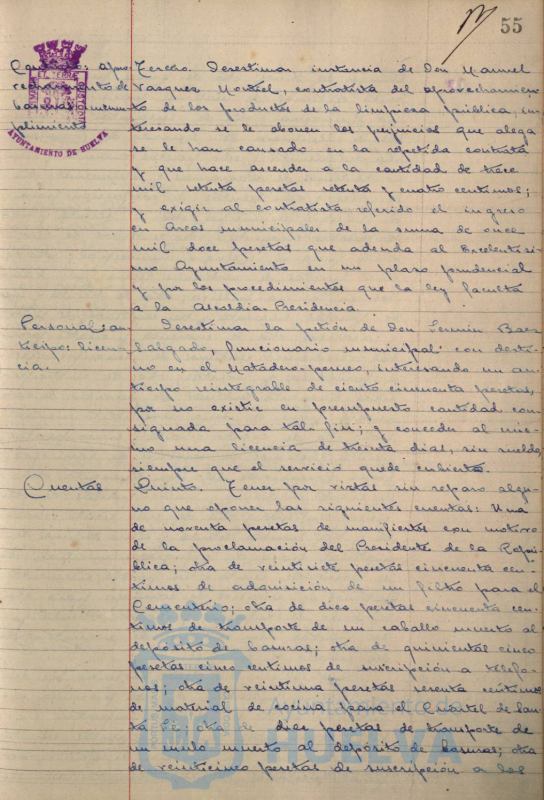 55
Contrato: apro-
vechamiento de
basuras: incum-
plimiento
AYUNTAMIENTO DE HUELVA
Tercero. Desestimar instancia de Don Manuel
Vasquez contratista del aprovechamien-
to de los productos de la limpieza pública, in-
teresando se le abonen los perjuicios que alega
se le han causado en la repetida contrata
y que hace ascender a la cantidad de trece
mil setenta pesetas setenta y cuatro centimos;
y exigir al contratista referido el ingreso
en Arcas municipales de la suma de once
mil doce pesetas que adeuda al Excelentisi-
mo Ayuntamiento en un plazo prudencial
y por los procedimientos que la ley faculta
a la Alcaldia-Presidencia.
Personal: an-
ticipo: licen-
cia.
Desestimar la petición de Don Fermin Baez
Salgado, funcionario municipal con desti-
no en el Matadero-porneo, interesando un an-
ticipo reintegrable de ciento cincuenta pesetas,
por no existir en presupuesto cantidad con-
signada para tal fin; y conceder al mis-
mo una licencia de treinta dias, sin sueldo,
siempre que el servicio quede cubierto.
Cuentas
Quinto. Tener por vistas sin reparo algu-
no que oponer las siguientes cuentas: Una
de noventa pesetas de manifiestos con motivo
de la proclamación del Presidente de la Repú-
blica; otra de veintisiete pesetas cincuenta cen-
timos de adquisición de un filtro para el
Cementerio; otra de diez pesetas cincuenta cen-
timos de transporte de un caballo muerto al
depósito de basuras; otra de quinientas cinco
pesetas cinco centimos de suscripción a telefo-
nos; otra de veintiuna pesetas sesenta centimos
de material de cocina para el Cuartel de San-
ta Fé; otra de diez pesetas de transporte de
un mulo muerto al depósito de basuras; otra
de veinticinco pesetas de suscripción a los
Ayuntamiento de
HUELVA